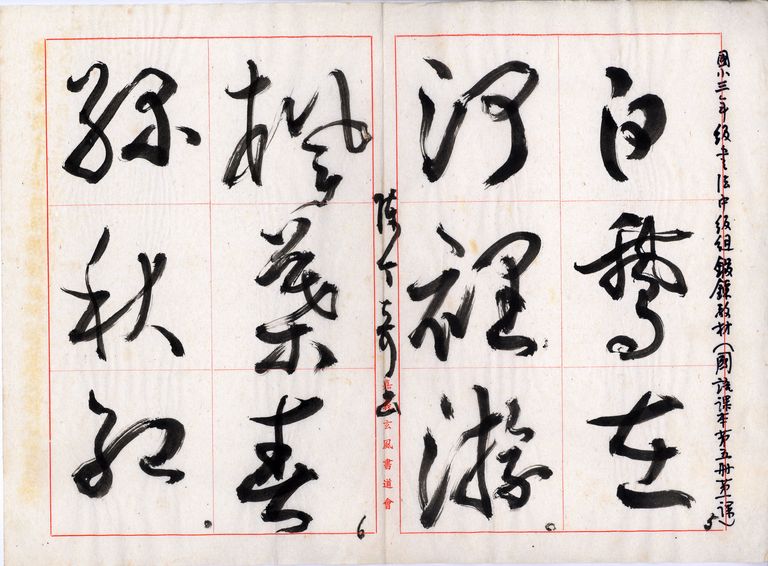 國小三年級書法中級組鍛鍊教材(國語課本第五冊第一課)
白鵝在
河裡游
5
玄風書道會
楓葉春
綠秋紅
6